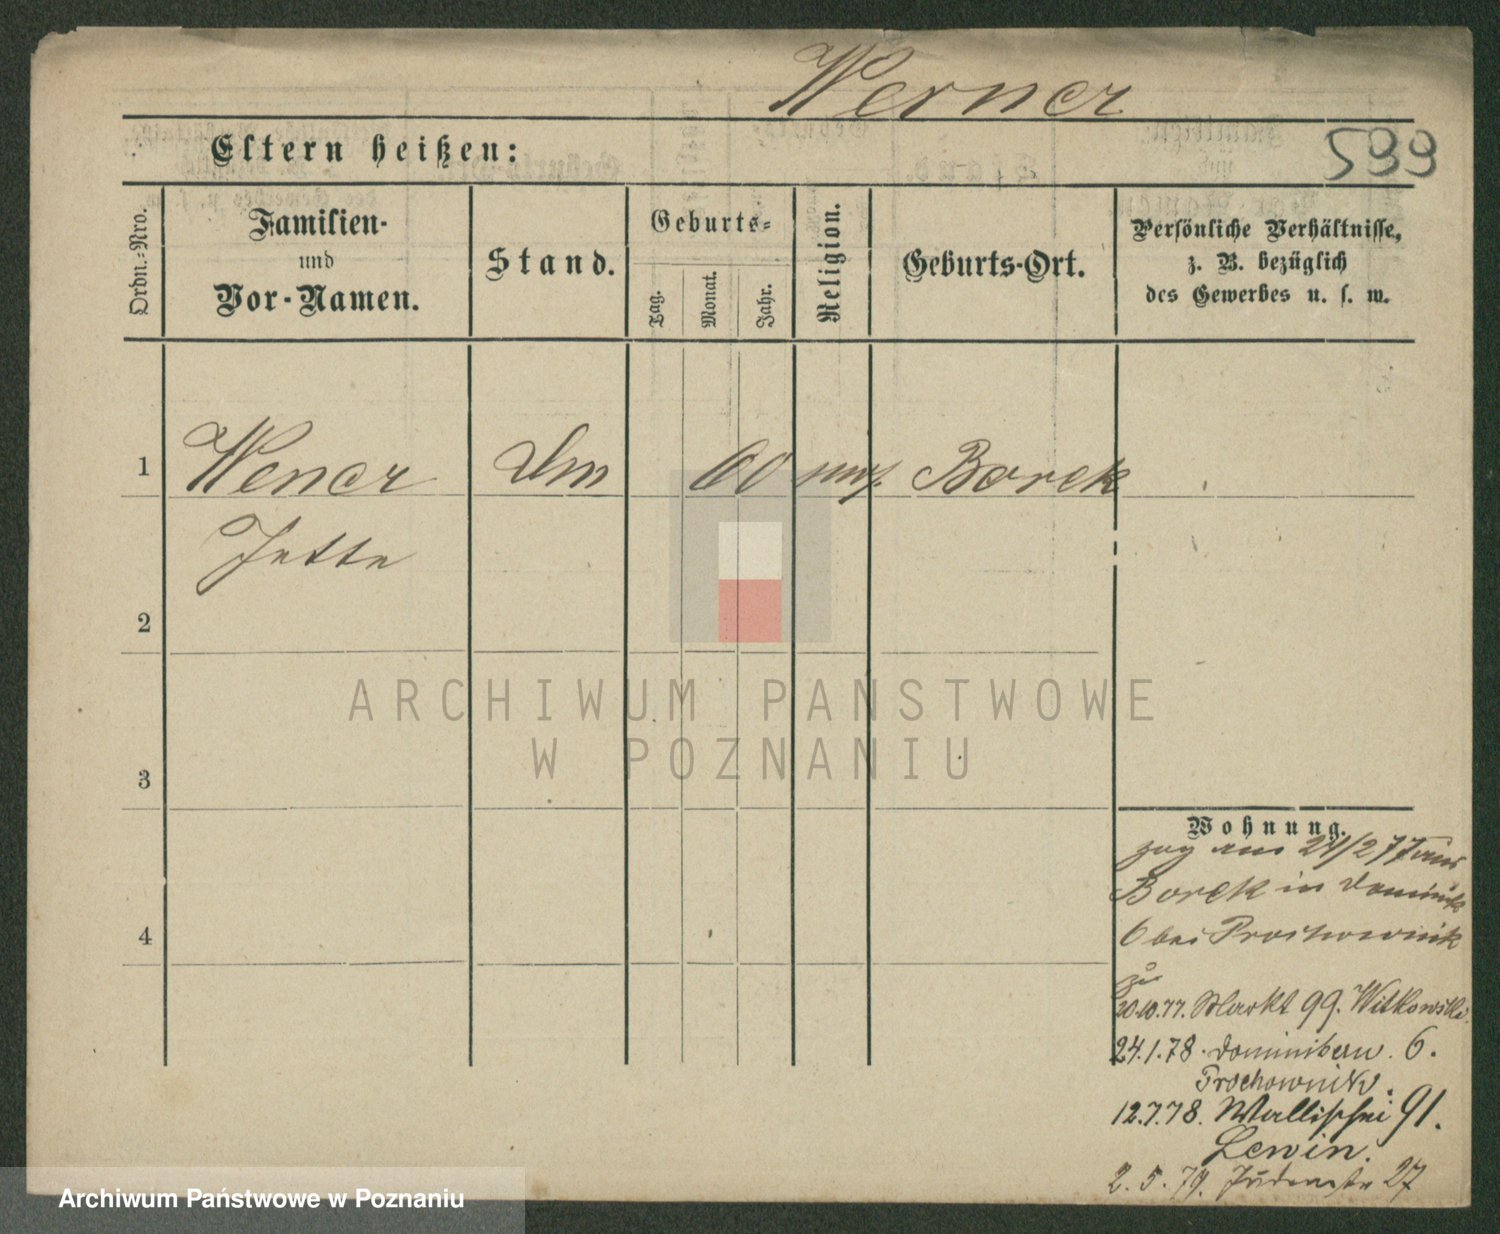 Werner
Eltern heißen:
599
Ordn.-Nro.
Familien-
und
Vor-Namen.
Stand.
Geburts-
Tag.
Monat.
Jahr.
Religion.
Geburts-Ort.
Persönliche Verhältnisse,
z. B. bezüglich
des Gewerbes u. s. w.
1
Werner
60
Borek
Jette
2
ARCHIWUM PAŃSTWOWE
W POZNANIU
3
Wohnung.
zog am 24/2 77 aus
Borek in Dominik
6 bei Prochownik
zu
4
20.10.77. Markt 99. Witkowski.
24.1.78. Dominikan. 6.
Prochownik.
12.7.78. Wallischei 91.
Lewin.
2.5.79. Judenstr 27
Archiwum Państwowe w Poznaniu